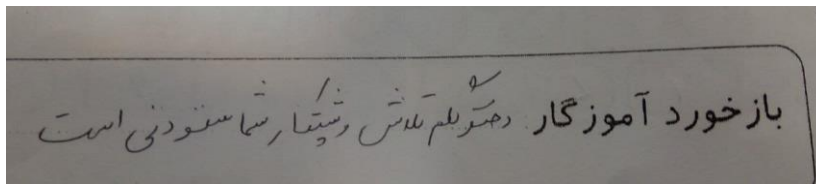 بازخورد آموزگار دختر گلم تلاش و پشتکار شما ستودنی است